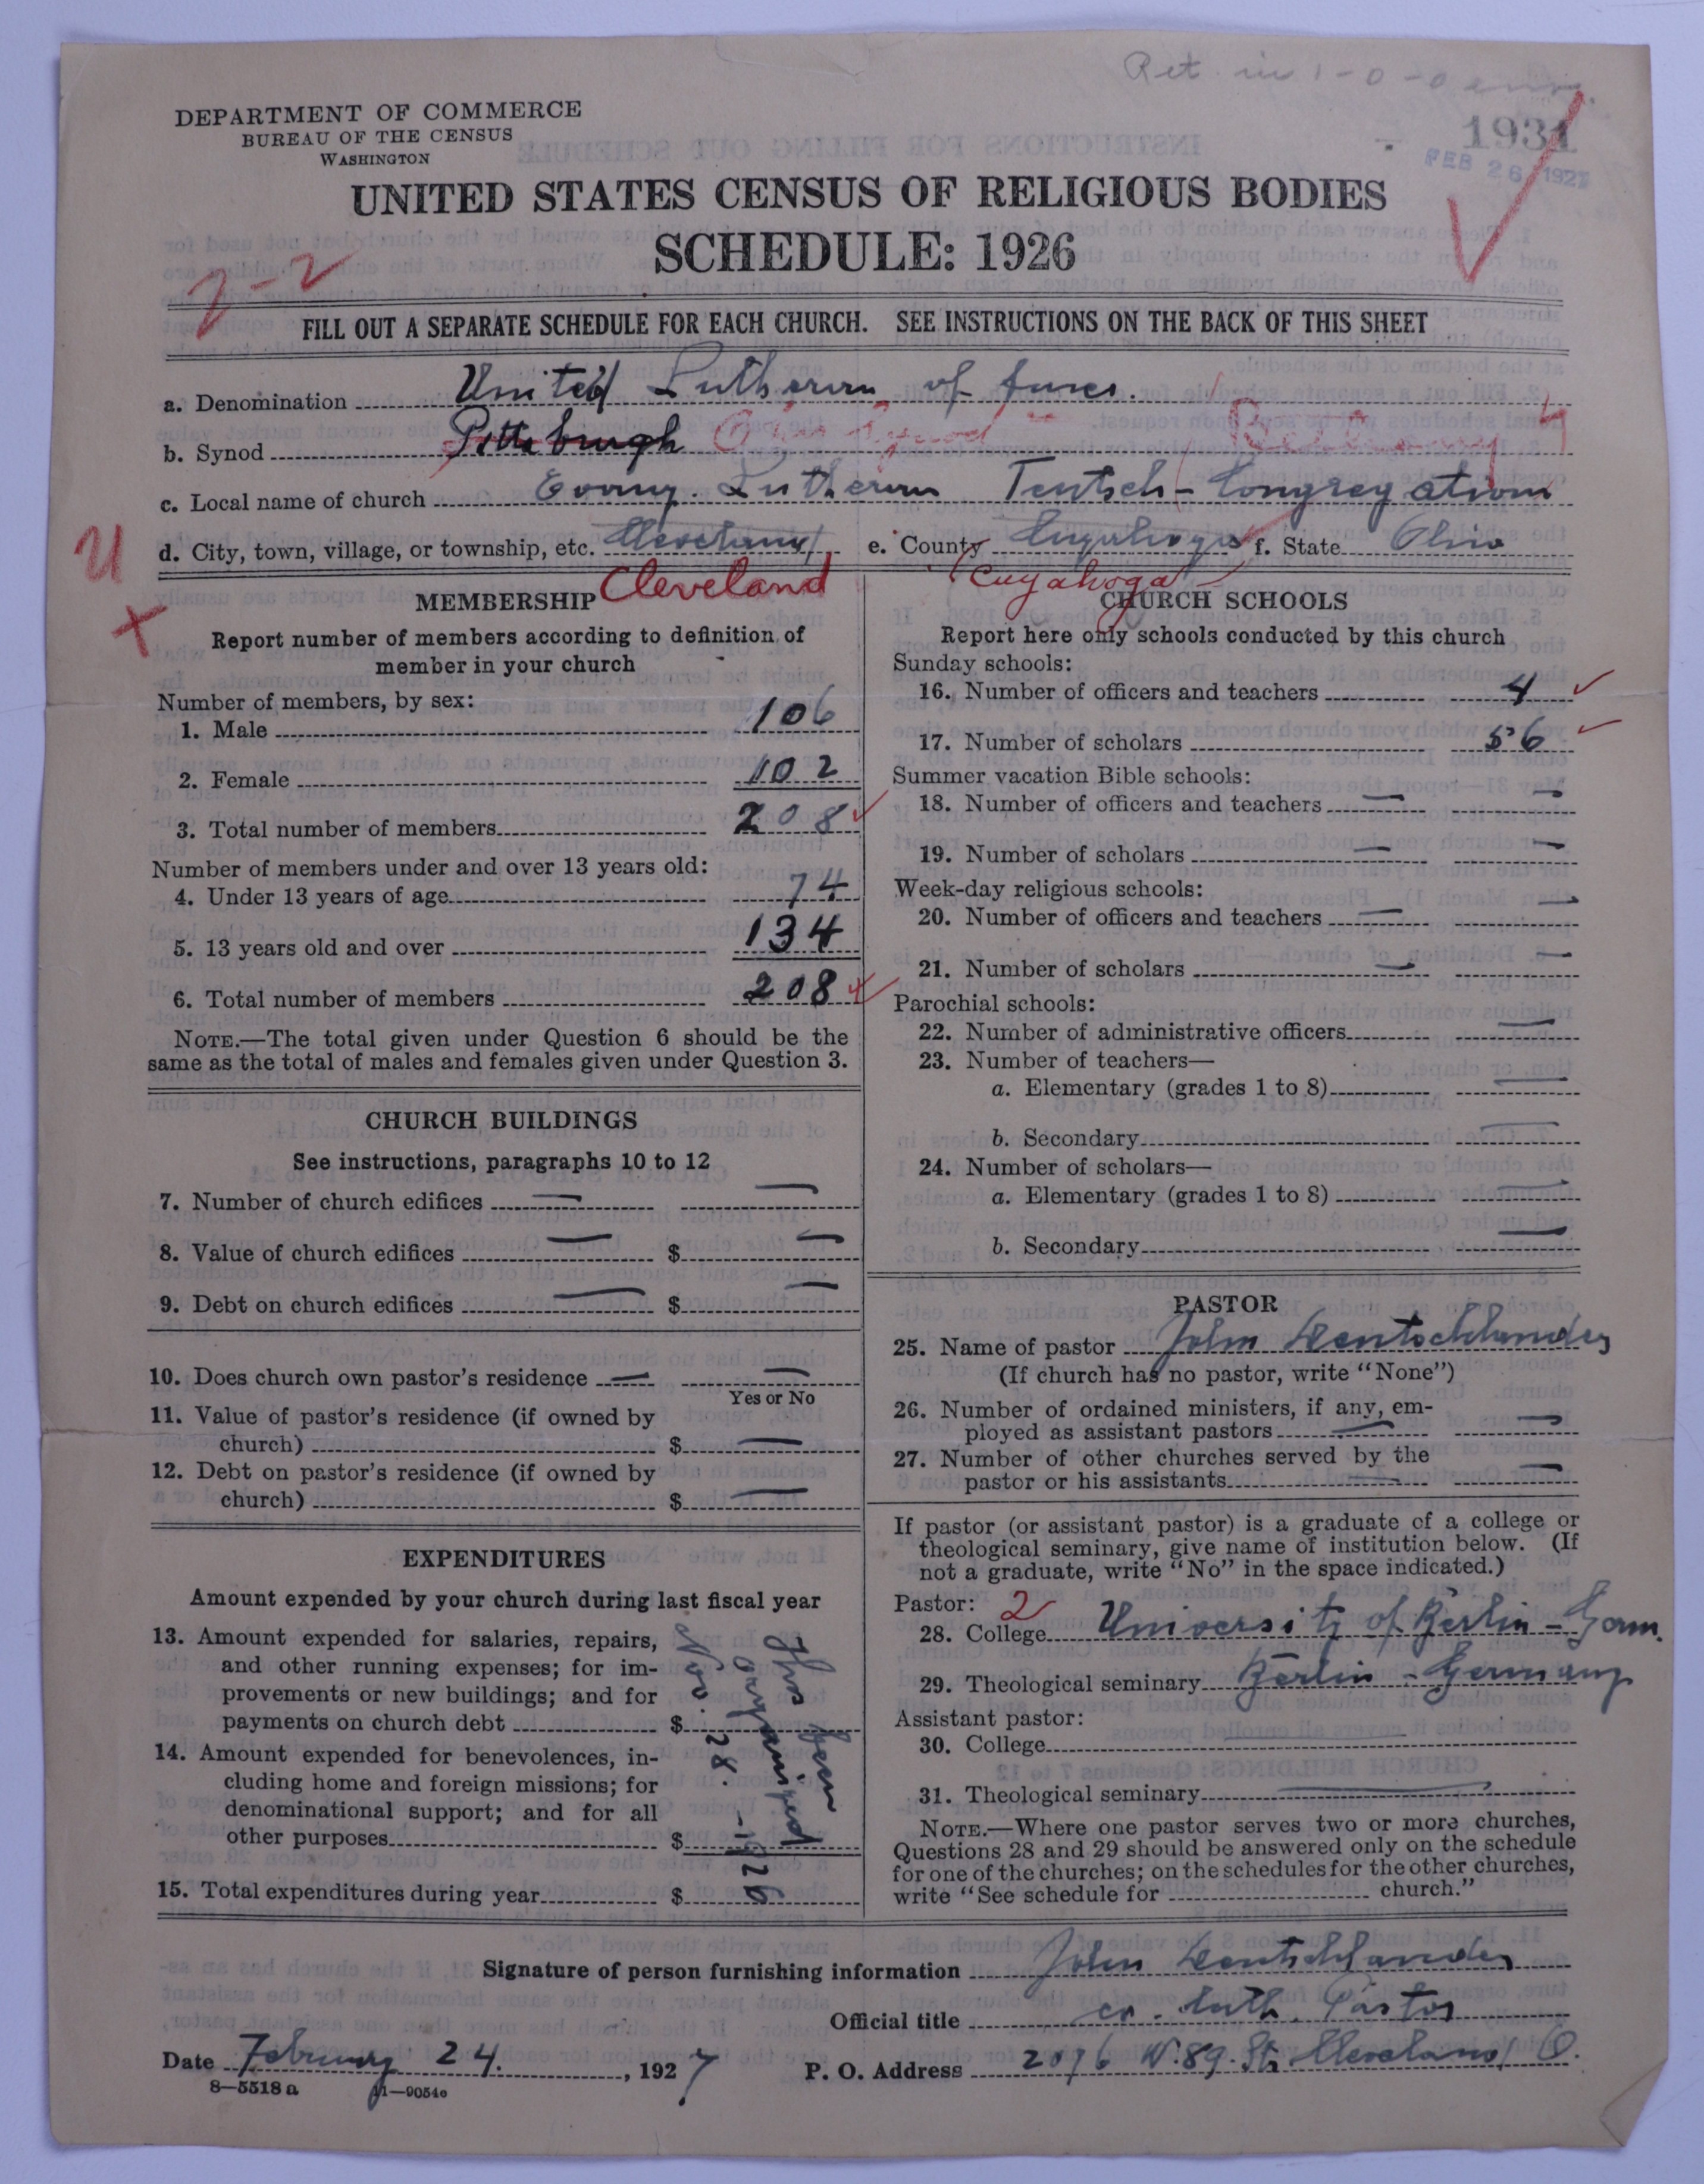 Ret. in 1-0-0
1931
FEB 26 1927
DEPARTMENT OF COMMERCE
BUREAU OF THE CENSUS
WASHINGTON
UNITED STATES CENSUS OF RELIGIOUS BODIES
SCHEDULE: 1926
2-2
FILL OUT A SEPARATE SCHEDULE FOR EACH CHURCH. SEE INSTRUCTIONS ON THE BACK OF THIS SHEET
a. Denomination United Lutheran of
b. Synod Pittsburgh Ohio Synod
c. Local name of church Evang. Lutheran Teutsch-Congregation
d. City, town, village, or township, etc. Cleveland e. County f. State Ohio
U
X
Cleveland Cuyahoga
MEMBERSHIP
Report number of members according to definition of
member in your church
Number of members, by sex:
1. Male 106
2. Female 102
3. Total number of members 208
Number of members under and over 13 years old:
4. Under 13 years of age 74
5. 13 years old and over 134
6. Total number of members 208
NOTE.—The total given under Question 6 should be the
same as the total of males and females given under Question 3.
CHURCH BUILDINGS
See instructions, paragraphs 10 to 12
7. Number of church edifices — —
8. Value of church edifices — $ —
9. Debt on church edifices — $ —
10. Does church own pastor's residence — —
Yes or No
11. Value of pastor's residence (if owned by
church) $ —
12. Debt on pastor's residence (if owned by
church) $ —
EXPENDITURES
Amount expended by your church during last fiscal year
13. Amount expended for salaries, repairs,
and other running expenses; for im-
provements or new buildings; and for
payments on church debt $
14. Amount expended for benevolences, in-
cluding home and foreign missions; for
denominational support; and for all
other purposes $
15. Total expenditures during year $
Has been
organized
Nov. 28. - 1926
CHURCH SCHOOLS
Report here only schools conducted by this church
Sunday schools:
16. Number of officers and teachers 4
17. Number of scholars 56
Summer vacation Bible schools:
18. Number of officers and teachers — —
19. Number of scholars — —
Week-day religious schools:
20. Number of officers and teachers — —
21. Number of scholars — —
Parochial schools:
22. Number of administrative officers —
23. Number of teachers—
a. Elementary (grades 1 to 8) —
b. Secondary —
24. Number of scholars—
a. Elementary (grades 1 to 8) —
b. Secondary —
PASTOR
25. Name of pastor John Deutschlander
(If church has no pastor, write "None")
26. Number of ordained ministers, if any, em-
ployed as assistant pastors — —
27. Number of other churches served by the
pastor or his assistants — —
If pastor (or assistant pastor) is a graduate of a college or
theological seminary, give name of institution below. (If
not a graduate, write "No" in the space indicated.)
Pastor: 2
28. College University of Berlin - Germ.
29. Theological seminary Berlin - Germany
Assistant pastor:
30. College —
31. Theological seminary —
NOTE.—Where one pastor serves two or more churches,
Questions 28 and 29 should be answered only on the schedule
for one of the churches; on the schedules for the other churches,
write "See schedule for church."
Signature of person furnishing information John Deutschlander
Official title ev. luth. Pastor
Date February 24. , 1927 P. O. Address 2076 W. 89. Str Cleveland O.
8—5518 a 11—9054o